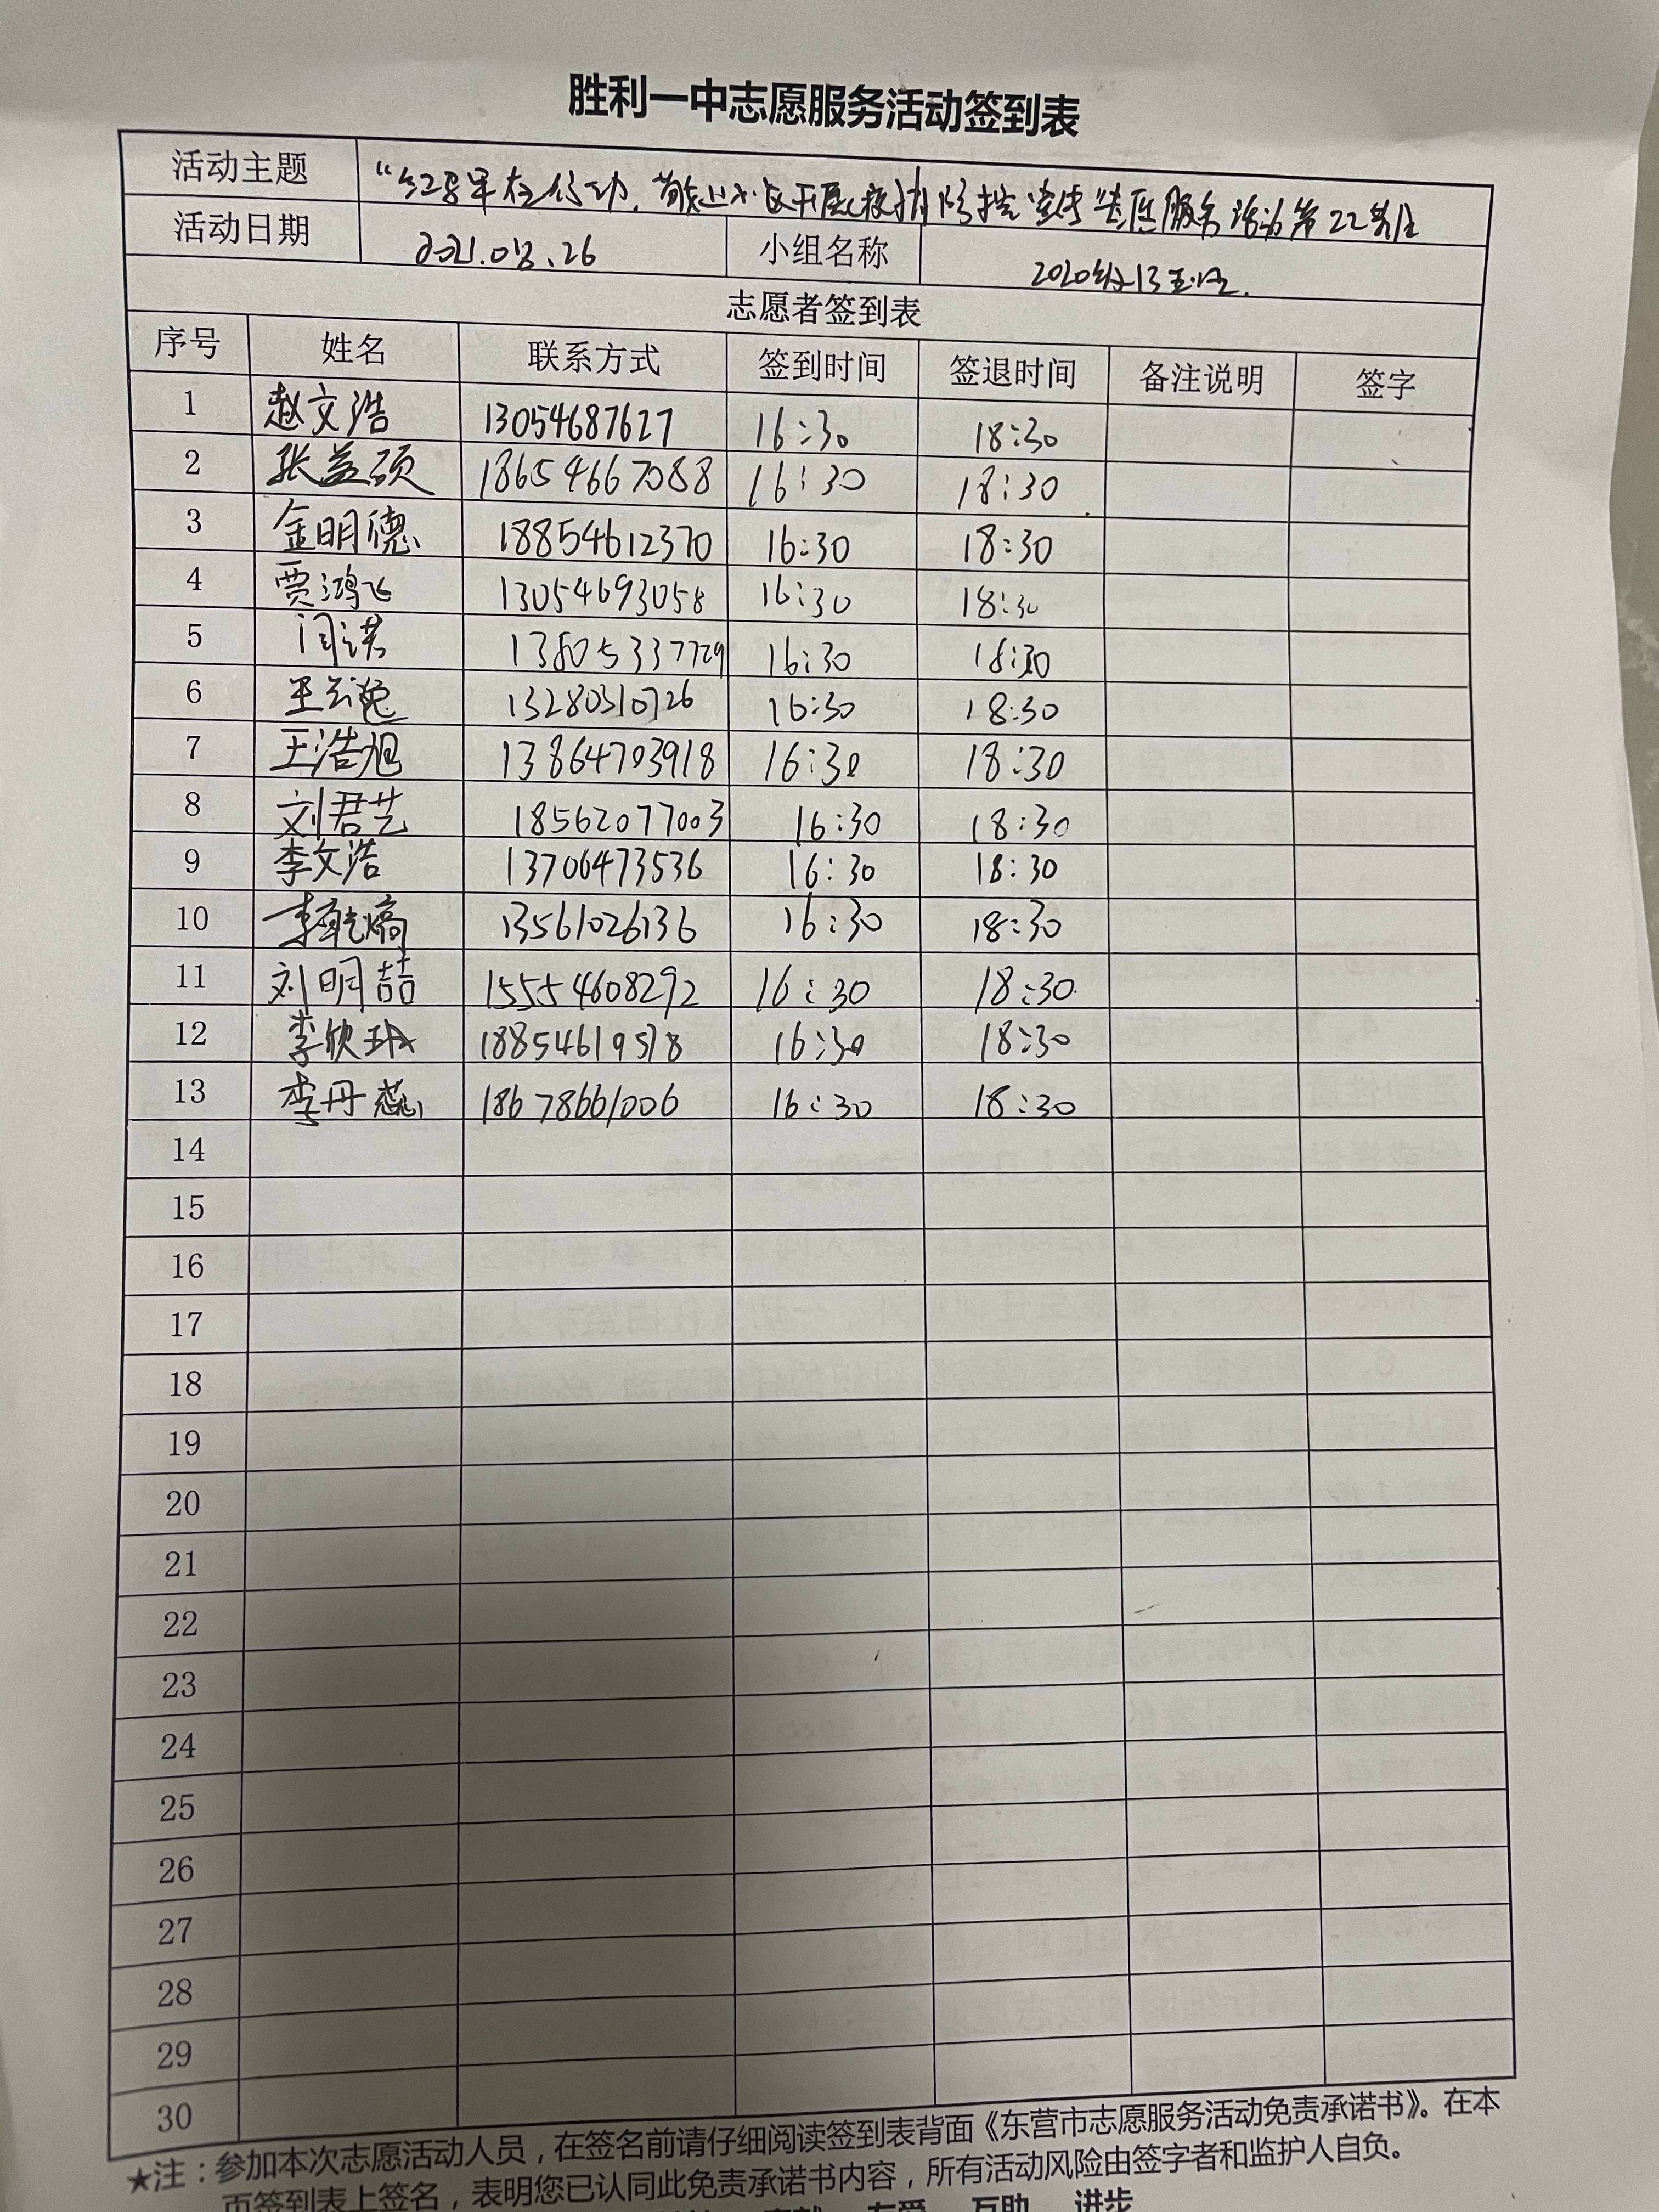 胜利一中志愿服务活动签到表
活动主题 “红马甲在行动, 小区开展疫情防控宣传志愿服务活动第22
活动日期 2021.08.26 小组名称 2020级13
志愿者签到表
序号 姓名 联系方式 签到时间 签退时间 备注说明 签字
1 赵文浩 13054687627 16:30 18:30
2 张益硕 18654667088 16:30 18:30
3 金明德 18854612370 16:30 18:30
4 贾鸿飞 13054693058 16:30 18:30
5 闫洪 13805337729 16:30 18:30
6 王云逸 13280310726 16:30 18:30
7 王浩旭 13864703918 16:30 18:30
8 刘君艺 18562077003 16:30 18:30
9 李文浩 13706473536 16:30 18:30
10 李乾熇 13561026136 16:30 18:30
11 刘明喆 15554608292 16:30 18:30
12 李欣 18854619518 16:30 18:30
13 李丹蕊 18678661006 16:30 18:30
14
15
16
17
18
19
20
21
22
23
24
25
26
27
28
29
30
★注：参加本次志愿活动人员，在签名前请仔细阅读签到表背面《东营市志愿服务活动免责承诺书》。在本
页签到表上签名，表明您已认同此免责承诺书内容，所有活动风险由签字者和监护人自负。
奉献 友爱 互助 进步